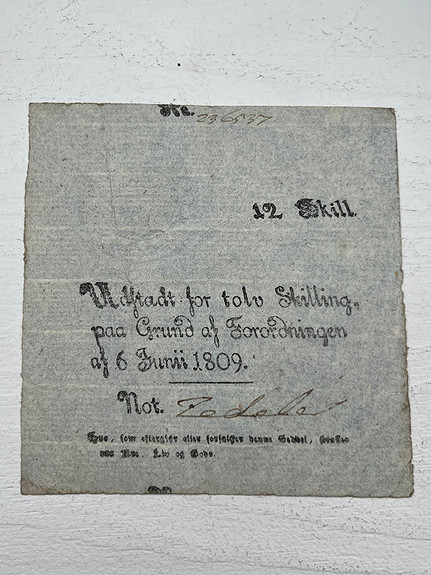 No. 236537
12 Skill.
Udstadt for tolv Skilling,
paa Grund af Forordningen
af 6 Junii 1809.
Not.
Hvo, som eftergiør eller forfalsker denne Seddel, straffes
paa Ære, Liv og Gods.